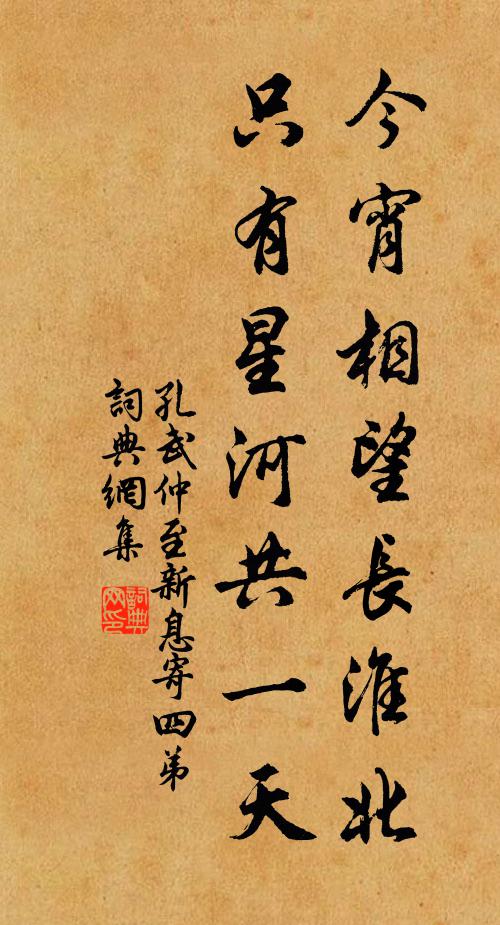 今宵相望長淮北
只有星河共一天
孔武仲至新息寄四弟
詞典網集
詞典網印